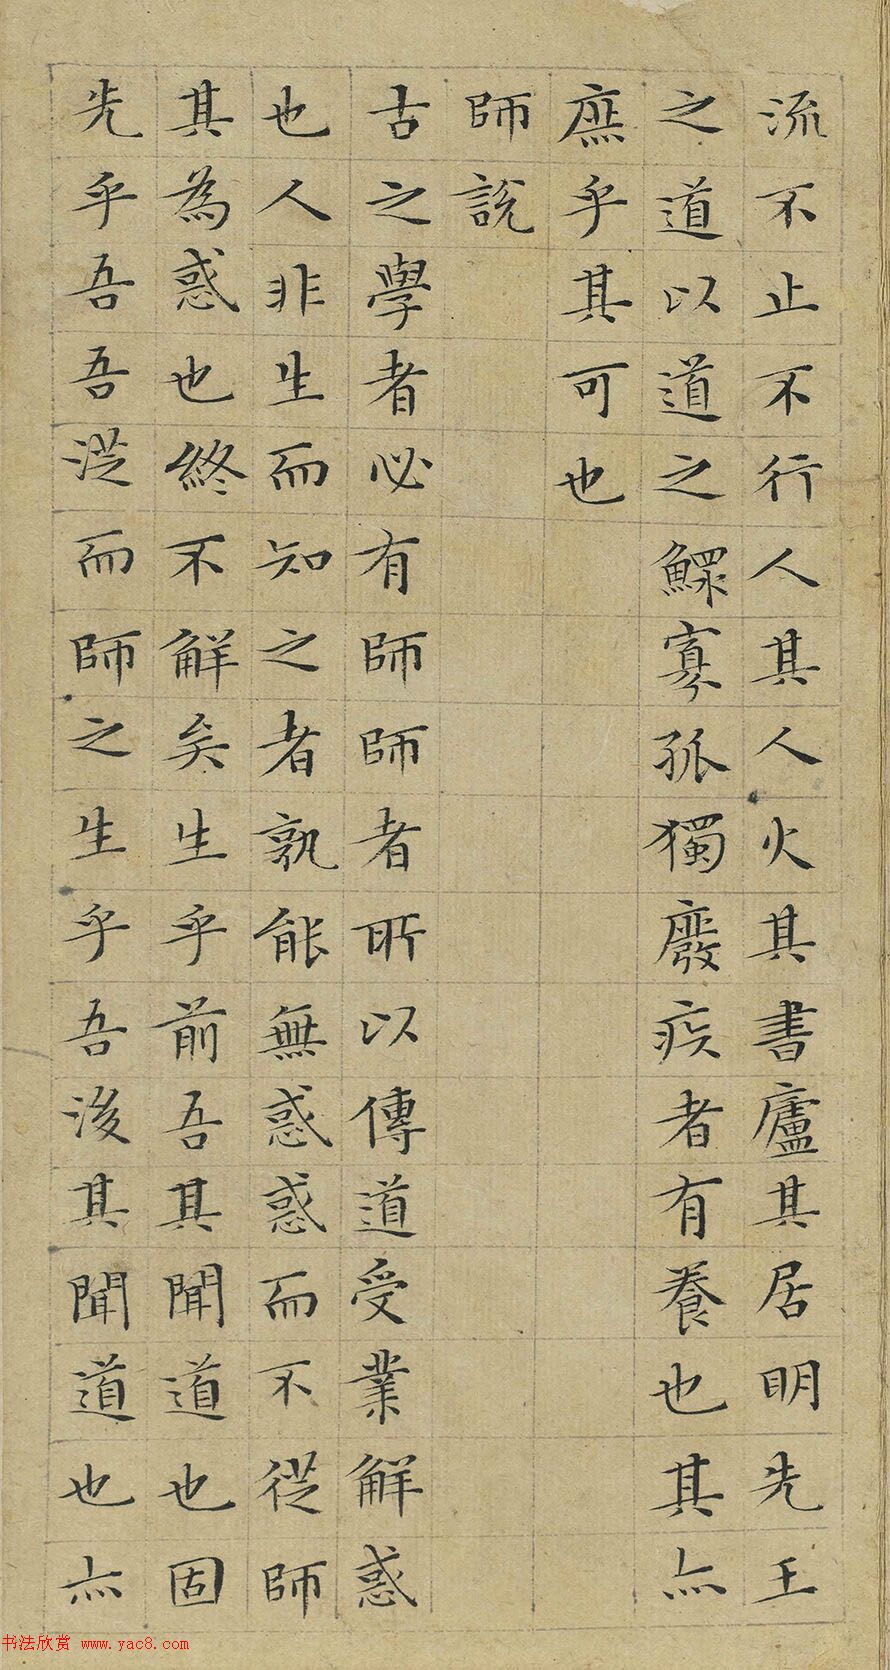 流不止不行人其人火其書廬其居明先王
之道以道之鰥寡孤獨廢疾者有養也其亦
庶乎其可也
師說
古之學者必有師師者所以傳道受業解惑
也人非生而知之者孰能無惑惑而不從師
其為惑也終不解矣生乎前吾其聞道也固
先乎吾吾從而師之生乎吾後其聞道也亦
书法欣赏 www.yac8.com